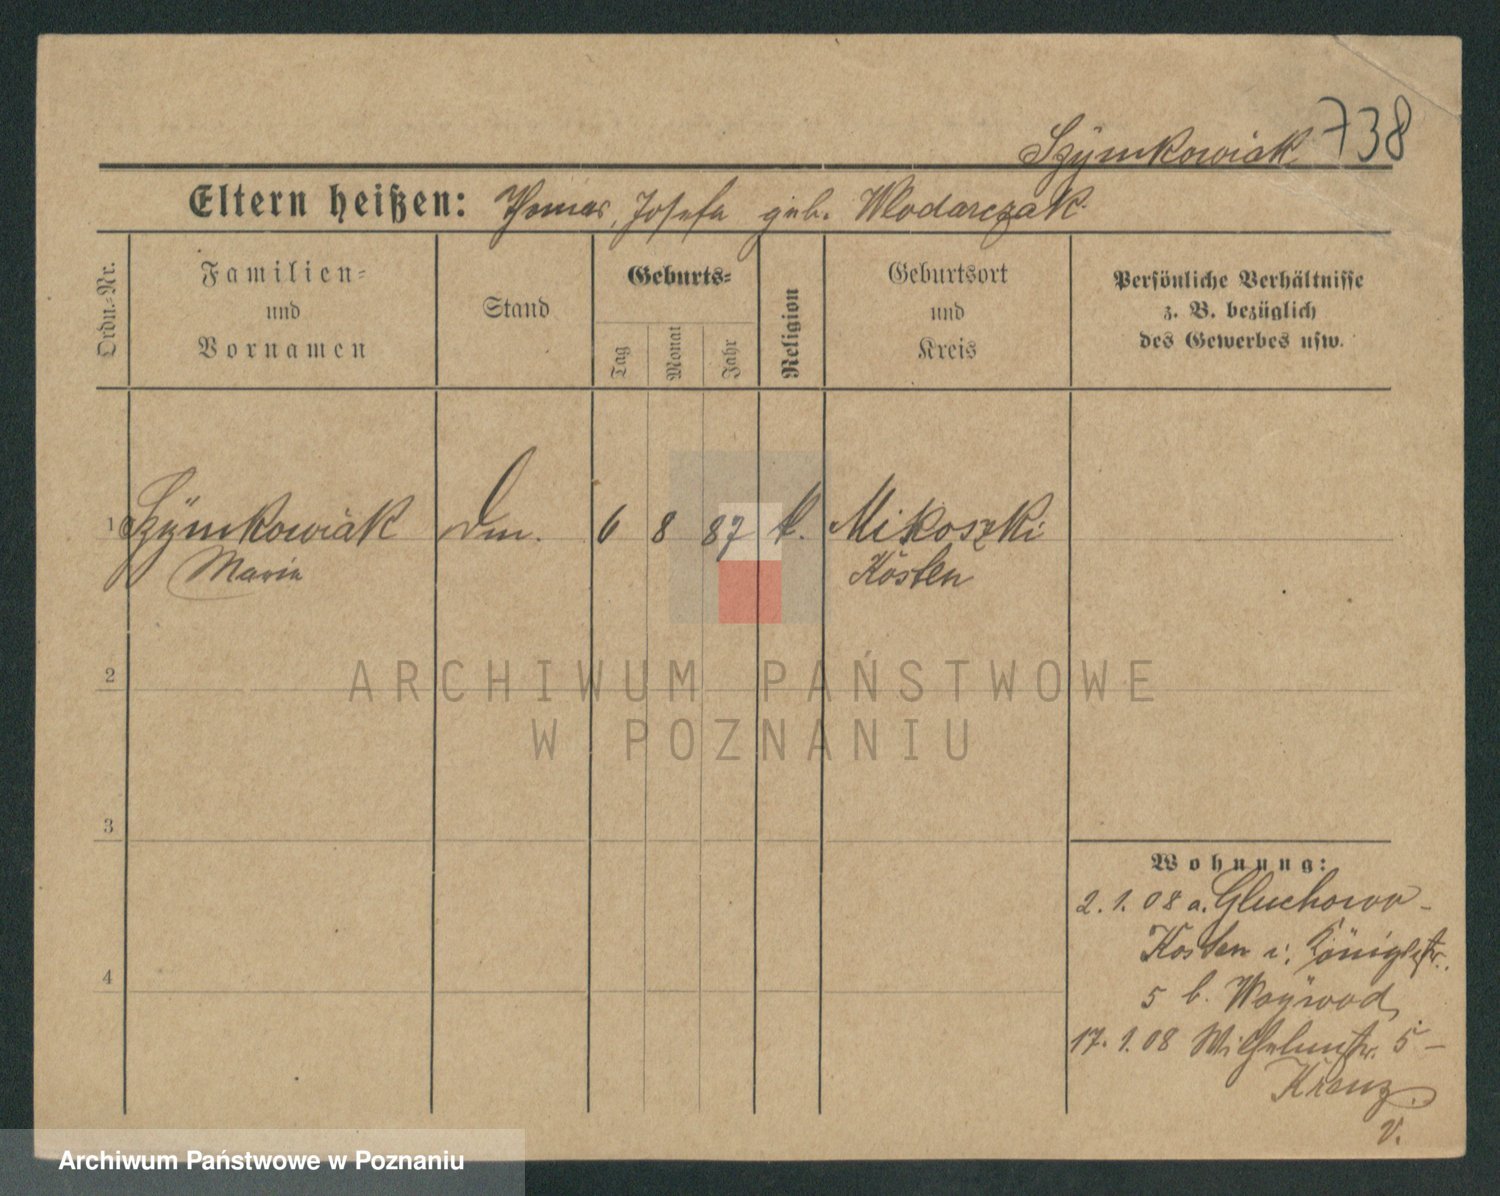 Szÿmkowiak 738
Eltern heißen: Thomas, Josefa geb. Wlodarczak
Ordn.-Nr.
Familien-
und
Vornamen
Stand
Geburts-
Tag
Monat
Jahr
Religion
Geburtsort
und
Kreis
Persönliche Verhältnisse
z. B. bezüglich
des Gewerbes usw.
1 Szÿmkowiak Dm. 6 8 87 k. Mikoszki
Maria Kosten
2
3
4
Wohnung:
2.1.08 a. Gluchowo-
Kosten i. Königstr.
5 b. Woÿwod
17.1.08 Wilhelmstr. 5-
Kranz.
V.
ARCHIWUM PAŃSTWOWE
W POZNANIU
Archiwum Państwowe w Poznaniu